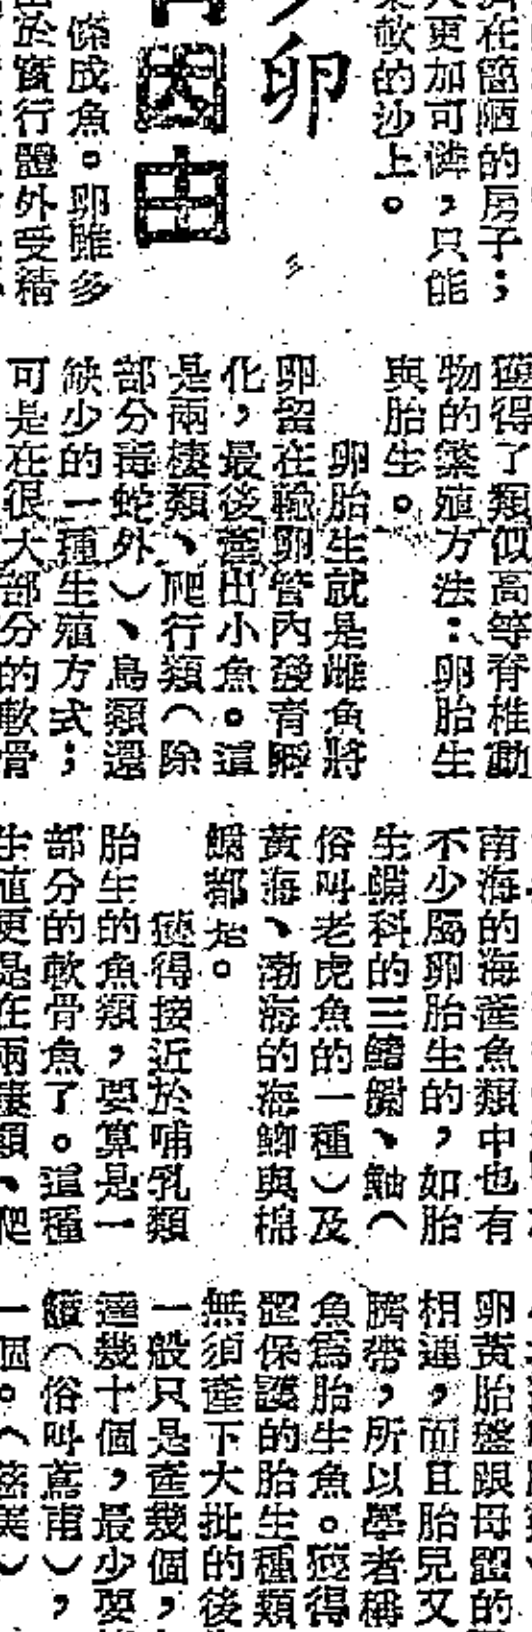 擠在簡陋的房子；
人更加可憐，只能
軟的沙上。
卵
因由
條成魚。卵雖多
於實行體外受精
獲得了類似高等脊椎動
物的繁殖方法：卵胎生
與胎生。
卵胎生就是雌魚將
卵留在輸卵管內發育孵
化，最後產出小魚。這
是兩棲類、爬行類（除
部分毒蛇外）、鳥類還
缺少的一種生殖方式；
可是在很大部分的軟骨
南海的海產魚類中也有
不少屬卵胎生的，如胎
生鱂科的三鰭鱂、鮋（
俗叫老虎魚的一種）及
黃海、渤海的海鯽與棉
鳚都是。
獲得接近於哺乳類
胎生的魚類，要算是一
部分的軟骨魚了。這種
生殖更是在兩棲類、爬
卵黃胎盤跟母體的
相連，而且胎兒又
臍帶，所以學者稱
魚為胎生魚。獲得
體保護的胎生種類
無須產下大批的後
一般只是產幾個，
達幾十個，最少要
鱝（俗叫鳶甫），
一個。（慈美）